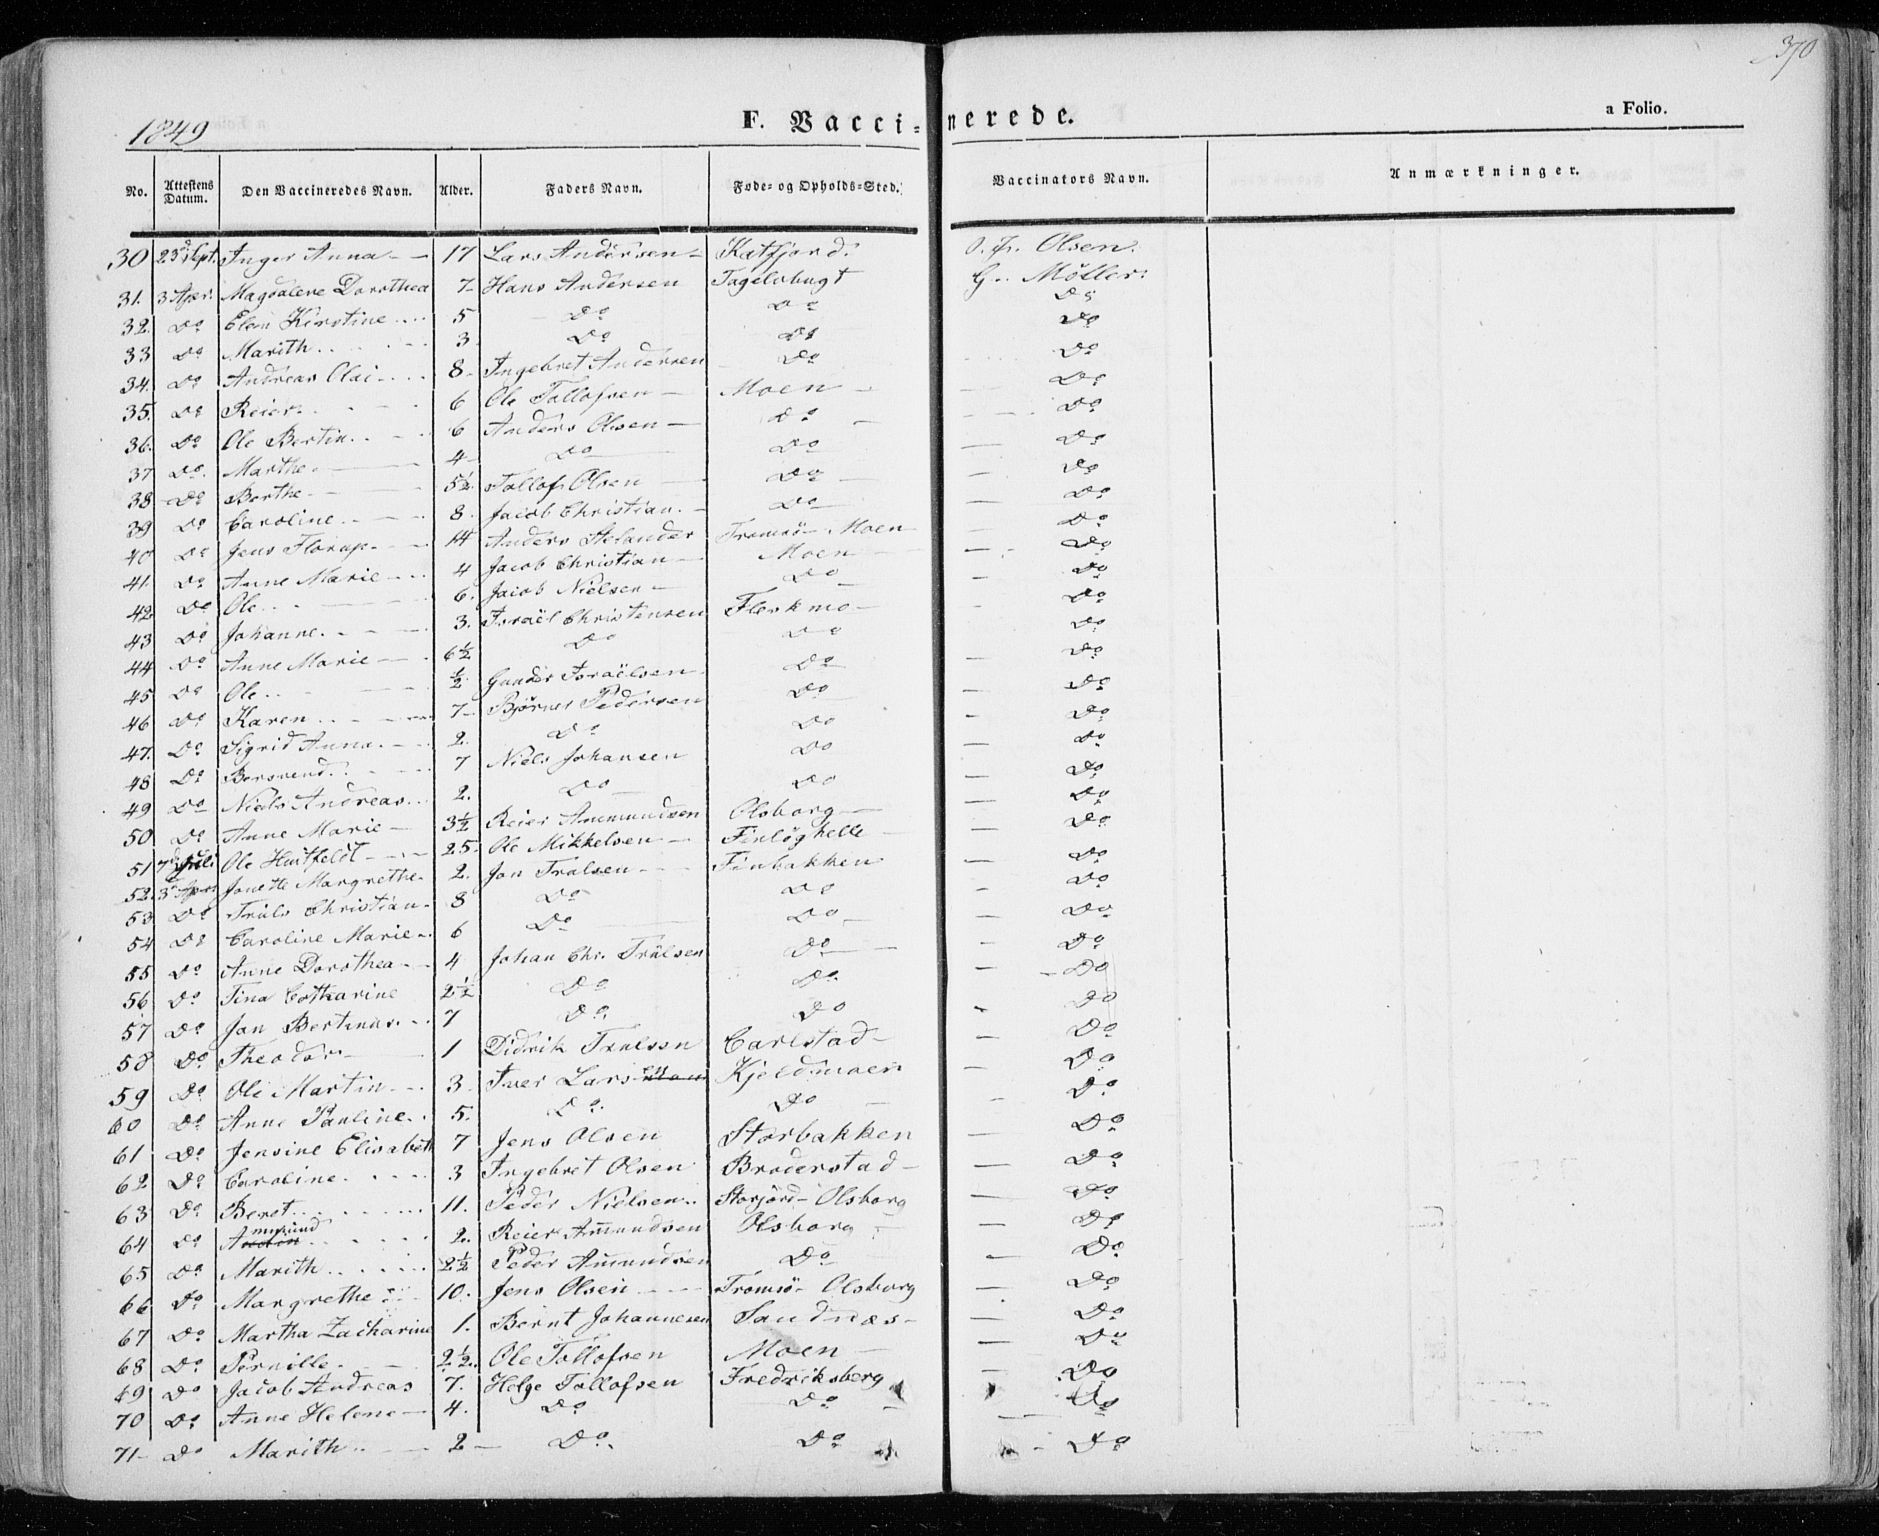 370
1849 F. Vacci- nerede. a Folio.
No. Attestens Datum. Den Vaccineredes Navn. Alder. Faders Navn. Føde- og Opholds-Sted. Vaccinators Navn. Anmærkninger.
30 23d Sept. Inger Anna 17 Lars Andersen Katfjord. Olsen.
31. 3 Apr. Magdalene Dorothea 7 Hans Andersen Tagelvbugt G. Møller.
32. Do Elen Kirstine 5 Do Do Do
33 Do Marith 3 Do Do Do
34. Do Andreas Olai 8 Ingebret Andersen Do Do
35. Do Reier 6 Ole Tollofsen Moen Do
36. Do Ole Bertin 6 Anders Olsen Do Do
37 Do. Marthe 4 Do Do Do
38 Do Berthe 5½ Tollof Olsen Do Do
39 Do Caroline 8. Jacob Christian. Do Do
40 Do Jens Florup 14 Anders Tromsö Moen Do
41. Do Anne Marie 4 Jacob Christian Moen Do
42 Do Ole 6. Jacob Nielsen Do Do
43 Do Johanne. 3. Israël Christensen Fleskmo Do
44 Do Anne Marie 6½ Do Do Do
45 Do Ole ½ Gunder Israëlsen Do Do
46 Do Karen 7 Bjørner Pedersen Do Do
47. Do Sigrid Anna. 2. Do Do Do
48 Do Bersvend 7 Niels Johansen Do Do
49 Do Niels Andreas 2. Do Do Do
50 Do Anne Marie 3½ Reier Ammundsen Olsborg Do
51 7d Juli Ole Hartfeldt 25 Ole Mikkelsen Finløghelle Do
52. 3d Apr. Jonette Margrethe 2. Jon Trulsen Finbakken Do
53 Do Truls Christian 8 Do Do Do
54 Do Caroline Marie 6 Do Do Do
55 Do Anne Dorothea 4 Johan Chr. Trulsen Do Do
56 Do Tina Catharine 2½ Do Do Do
57 Do Jan Bertinus 7 Do. Do Do
58 Do Theodor 1 Didrik Trulsen Carlstad Do
59 Do Ole Martin 3 Iver Larsen Kjeldmoen Do
60 Do Anne Pauline 5. Do. Do Do
61 Do Jensine Elisabeth 7 Jens Olsen Storbakken Do
62 Do Caroline 3 Ingebret Olsen Broderstad Do
63 Do Beret 11. Peder Nielsen Storjord Olsborg Do
64 Do Ammund 2. Reier Amundsen Olsborg Do
65 Do Marith 2½ Peder Amundsen Do Do
66 Do Margrethe 10. Jens Olsen Tromsö Olsborg Do
67 Do Martha Zacharine 1. Bernt Johannesen Sandnæs Do
68 Do Pernille. 2½. Ole Tollofsen Moen Do
69 Do Jacob Andreas 7. Helge Tollofsen Fredriksberg Do
70 Do Anne Helene 4. Do Do Do
71 Do Marith 2 Do. Do Do